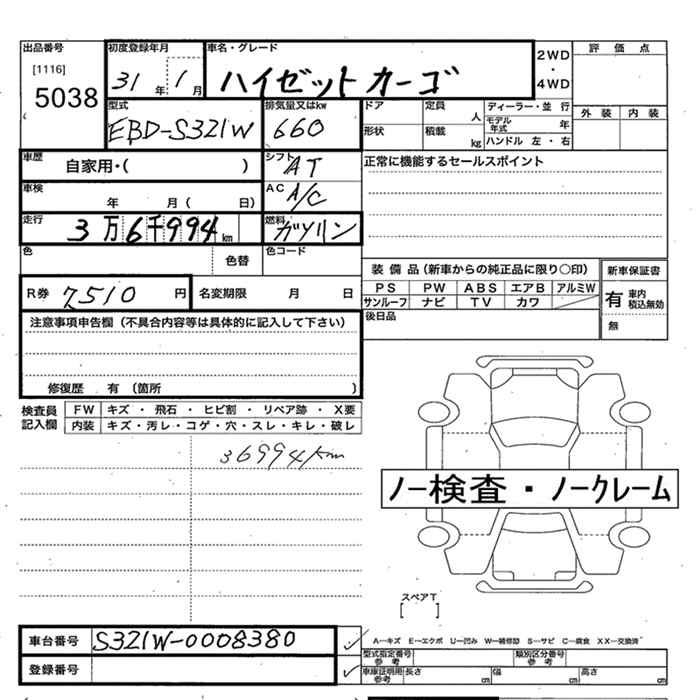 出品番号 初度登録年月 車名・グレード 2WD ・ 4WD 評価点
[1116] 5038 31年 1月 ハイゼットカーゴ
外装 内装
型式 排気量又はkw ドア 定員 人 ディーラー・並行
EBD-S321W 660 モデル年式 年
形状 積載 kg ハンドル 左・右
車歴 自家用・( ) シフト AT 正常に機能するセールスポイント
車検 年 月( 日) AC A/C
走行 3万6千994km 燃料 ガソリン
色 色替 色コード
装備品(新車からの純正品に限り○印) 新車保証書
R券 7510円 名変期限 月 日 PS PW ABS エアB アルミW 有 車内積込無効
サンルーフ ナビ TV カワ
後日品 無
注意事項申告欄(不具合内容等は具体的に記入して下さい)
修復歴 有(箇所 )
検査員記入欄 FW キズ・飛石・ヒビ割・リペア跡・X要
内装 キズ・汚レ・コゲ・穴・スレ・キレ・破レ
36994km
ノー検査・ノークレーム
スペアT
[ ]
車台番号 S321W-0008380 A−キズ E−エクボ U−凹み W−補修跡 S−サビ C−腐食 XX−交換済
型式指定番号 参考 類別区分番号 参考
登録番号 車庫証明用 参考 長さ cm 幅 cm 高さ cm